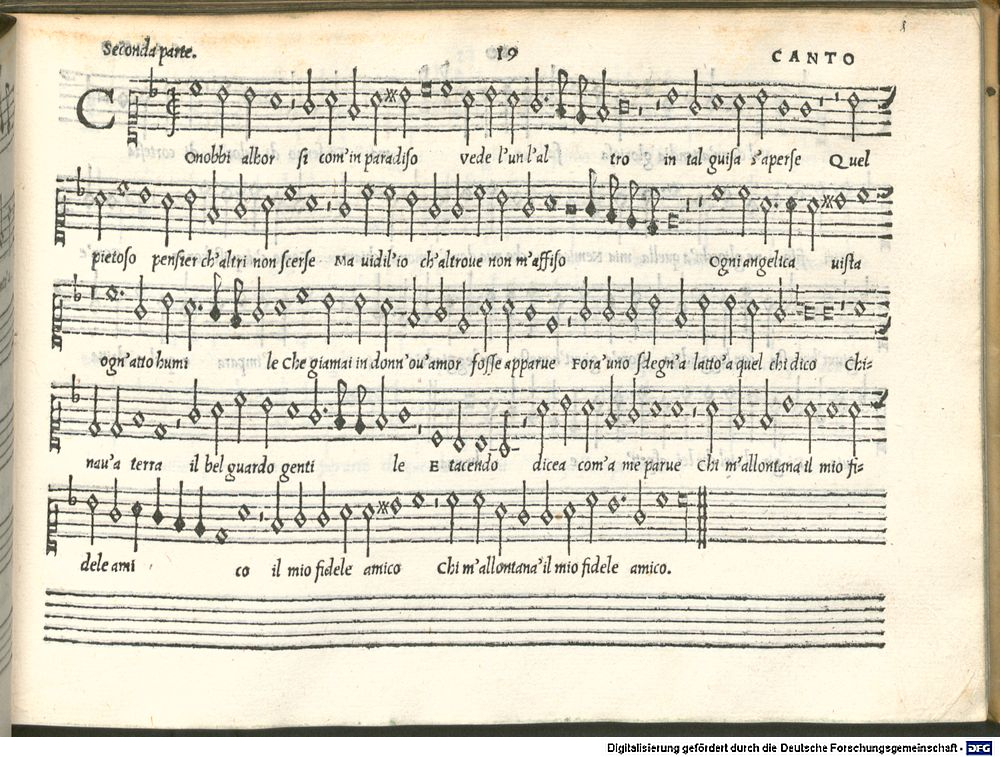 Seconda parte. 19 CANTO
COnobbi allhor si com'in paradiso vede l'un l'al- tro in tal guisa s'aperse Quel
pietoso pensier ch'altri non scerse Ma vidil'io ch'altroue non m'affiso Ogni angelica uista
ogn'atto humi le Che giamai in donn'ou'amor fosse apparue Fora'uno sdegn'a latto'a quel chi dico Chi-
nau'a terra il bel guardo genti le E tacendo dicea com'a me parue Chi m'allontana il mio fi-
dele ami co il mio fidele amico Chi m'allontana'il mio fidele amico.
Digitalisierung gefördert durch die Deutsche Forschungsgemeinschaft - DFG